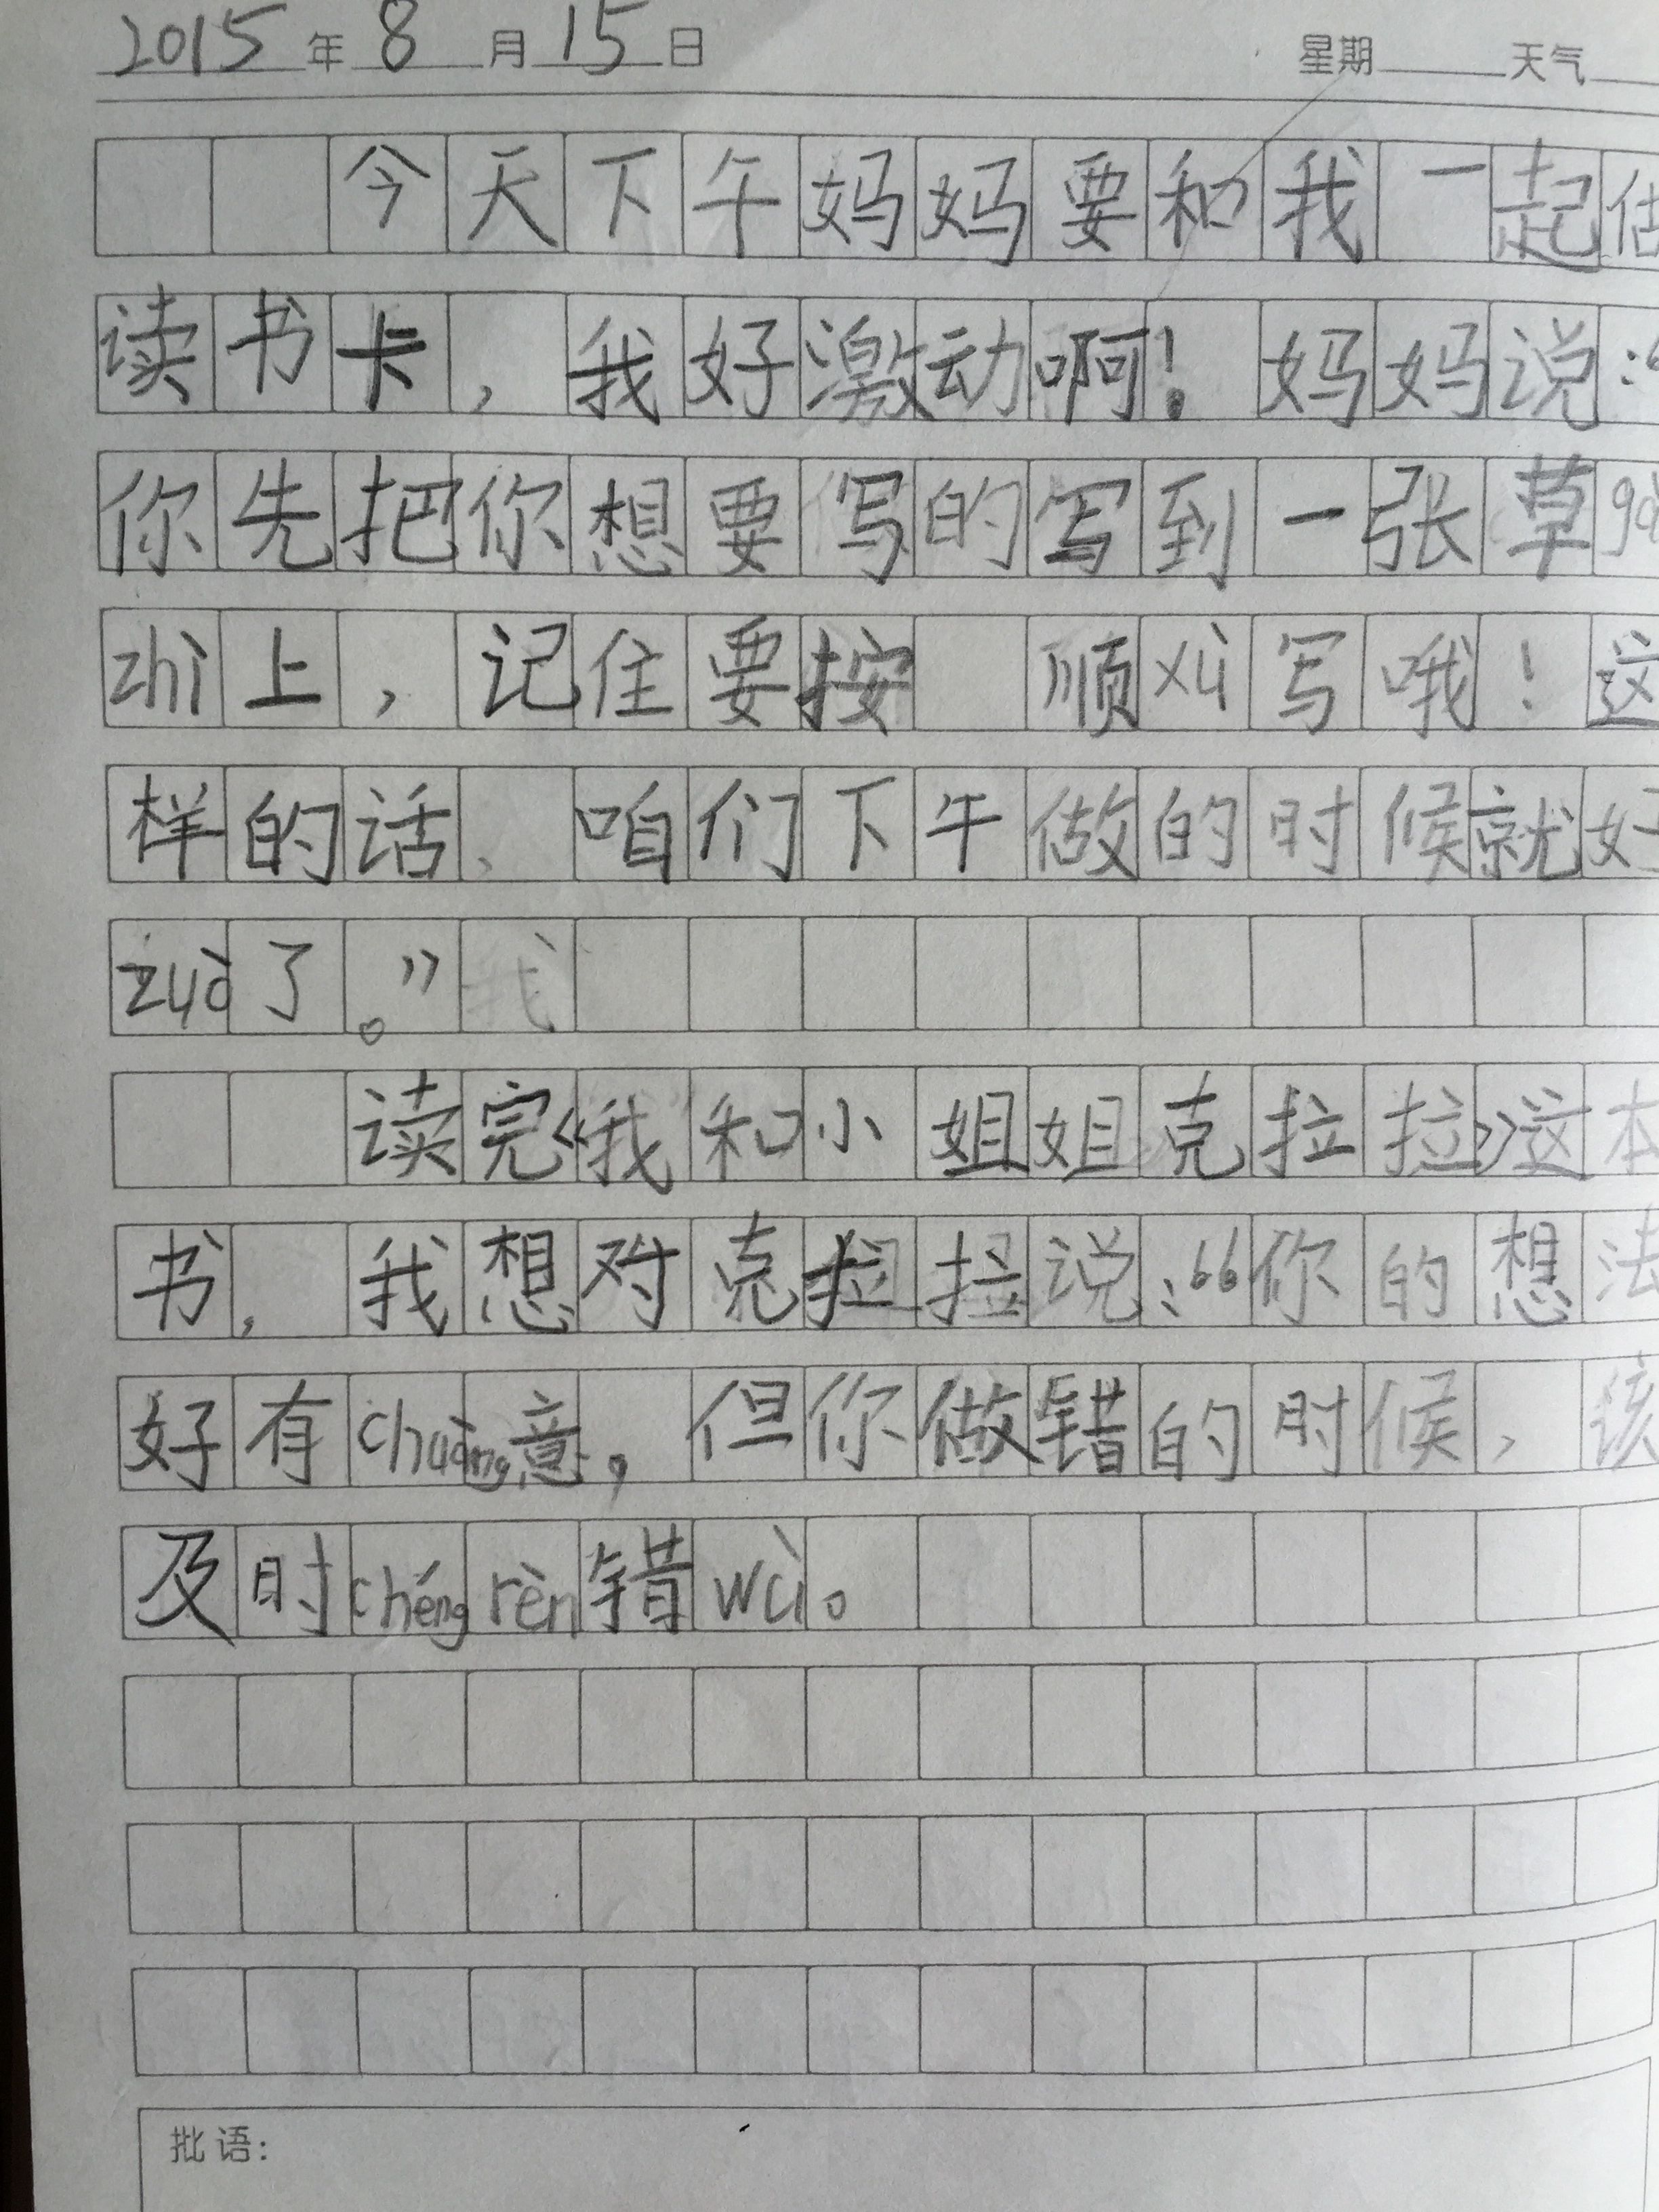 2015年8月15日 星期 天气
今天下午妈妈要和我一起
读书卡，我好激动啊！妈妈说：“
你先把你想要写的写到一张草
zhǐ上，记住要按 顺xù写哦！这
样的话、咱们下午做的时候就好
zuò了。”
读完《我和小姐姐克拉拉》这本
书，我想对克拉拉说：“你的想法
好有chuàng意，但你做错的时候，该
及时chéng rèn错wù。
批语：